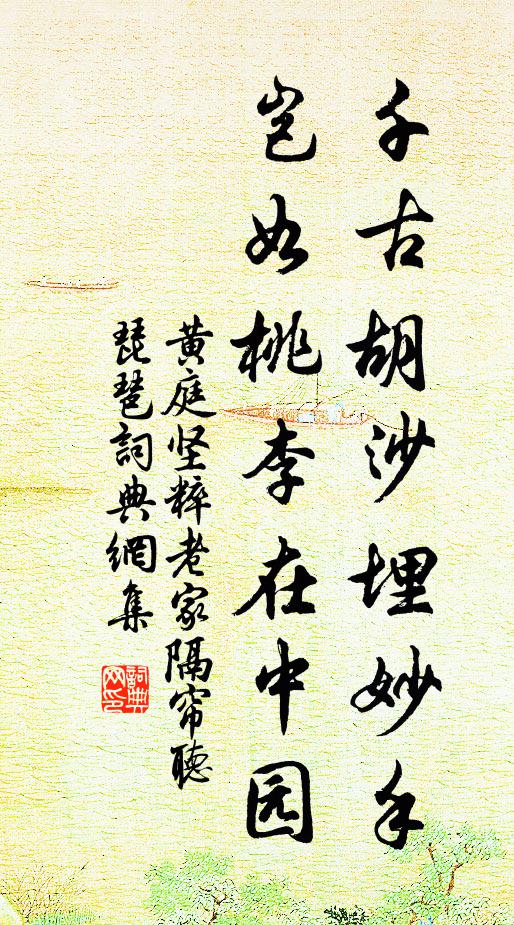 千古胡沙埋妙手
岂如桃李在中园
黄庭坚粹老家隔帘聴
琵琶詞典網集
詞典
网印